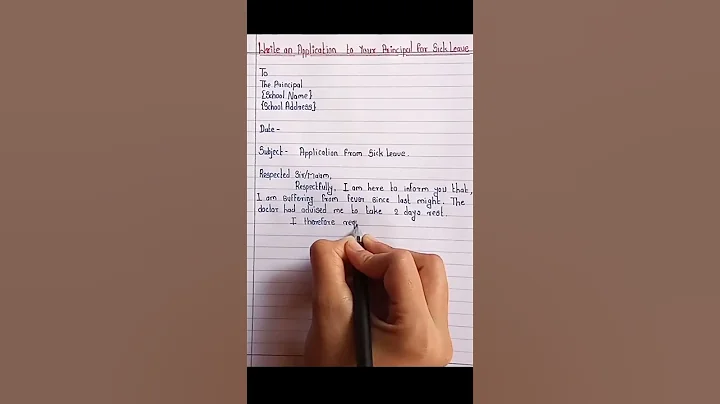 Write an Application to Your Principal For Sick Leave
To
The Principal
{School Name}
{School Address}
Date -
Subject - Application from Sick Leave.
Respected Sir/Ma'am,
Respectfully, I am here to inform you that,
I am suffering from fever since last night. The
doctor had advised me to take 2 days rest.
I therefore req